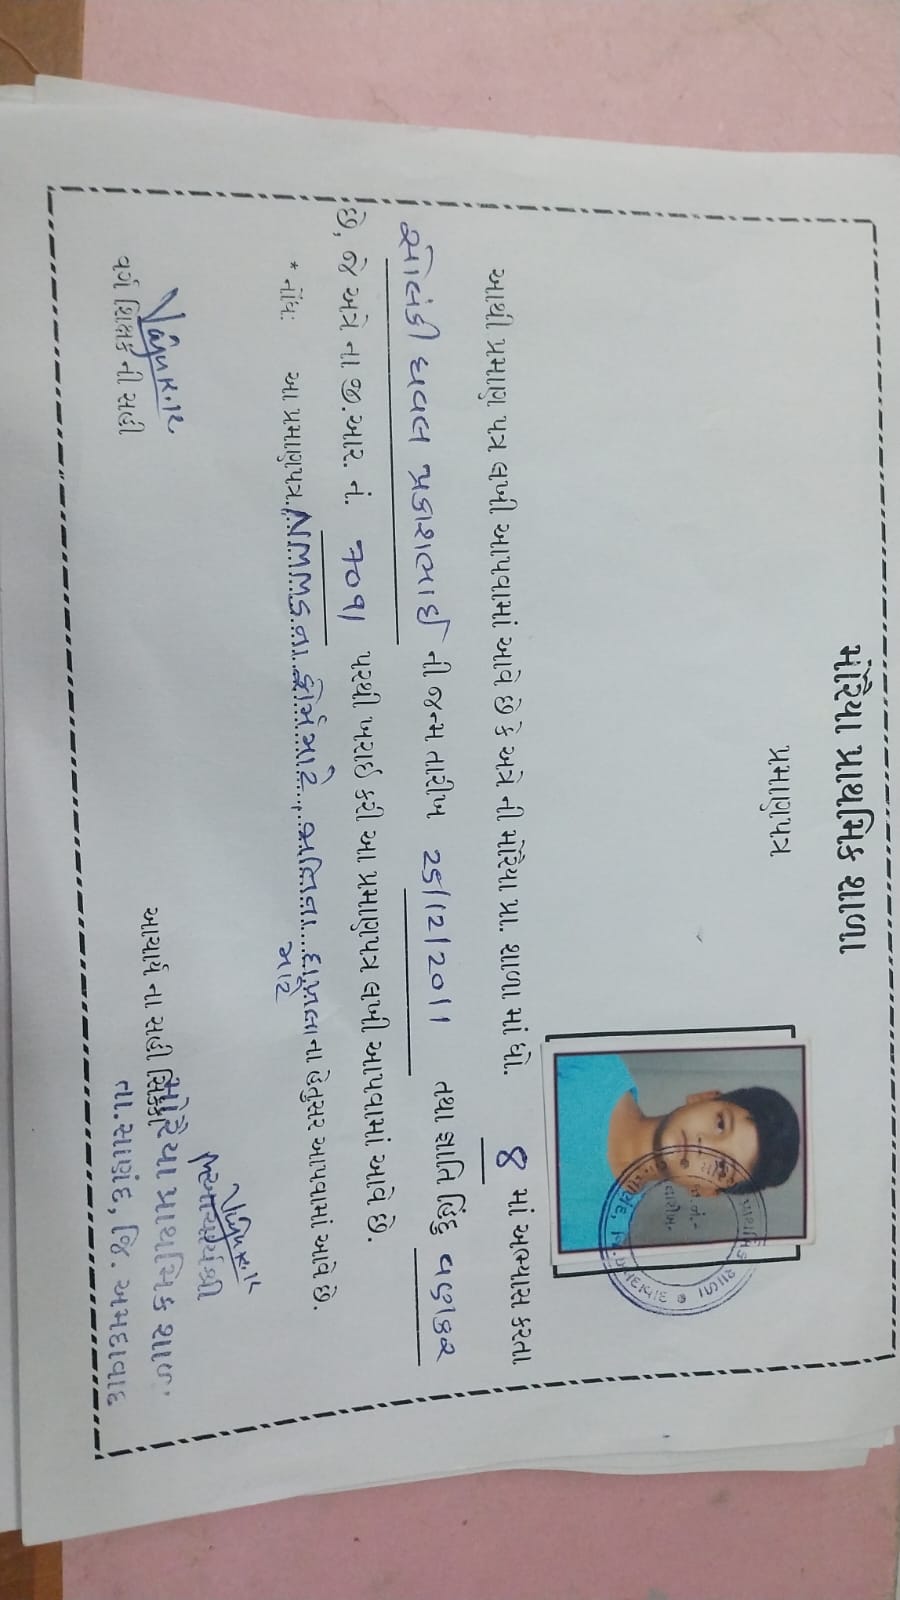 મોરૈયા પ્રાથમિક શાળા
પ્રમાણપત્ર
આથી પ્રમાણ પત્ર લખી આપવામાં આવે છે કે અત્રે ની મોરૈયા પ્રા. શાળા માં ધો. 8 માં અભ્યાસ કરતા
સોલંકી ધવલ પ્રકાશભાઈ ની જન્મ તારીખ 25/12/2011 તથા જ્ઞાતિ હિંદુ વણકર
છે, જે અત્રે ના જી.આર. નં. 7091 પરથી ખરાઈ કરી આ પ્રમાણપત્ર લખી આપવામાં આવે છે.
* નોંધ: આ પ્રમાણપત્ર NMMS ના ફોર્મ માટે, જાતિના દાખલા ના હેતુસર આપવામાં આવે છે.
માટે
વર્ગ શિક્ષક ની સહી
આચાર્ય ના સહી સિક્કા
મોરૈયા પ્રાથમિક શાળા
તા.સાણંદ, જિ. અમદાવાદ